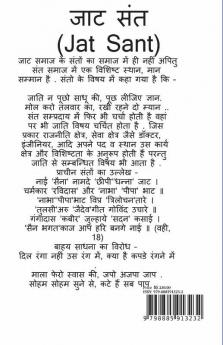 जाट संत
(Jat Sant)
जाट समाज के संतों का समाज में ही नहीं अपितु
संत समाज में एक विशिष्ट स्थान, मान
सम्मान है . संतों के विषय में कहा गया है कि -
जाति न पूछो साधू की, पूछ लीजिए ज्ञान.
मोल करो तलवार का, रखी रहने दो म्यान ..
संत सम्प्रदाय में फिर भी चर्चा होती है वहां
पर भी जाति विषय चर्चित होता है . जिस
प्रकार राजनीति क्षेत्र, सेवा क्षेत्र जैसे डॉक्टर,
इंजीनियर, आदि अपने पद व स्थान उस कार्य
क्षेत्र और विशिष्टता के अनुरूप होती हैं परन्तु
जाति से सम्बन्धित विषय भी आता है .
प्राचीन संतों का उल्लेख -
नाई 'सैना' नामदे 'छीपी'धन्ना' जाट ।
चर्मकार 'रविदास' और 'नाभा' 'पीपा' भाट ॥
'नाभा'पीपा'भाट विप्र 'त्रिलोचन'तारे ।
'तुलसी'अरु 'जैदेव'गीत गोविंद उचारे ॥
गंगीदास 'कबीर' जुल्हाये 'सदन' कसाई ।
'सैन भगत'काज आप हरि बनगे नाई ॥ (वही,
18)
बाहय साधना का विरोध -
दिल रंगा नहीं उस रंग में, क्या है कपडे रंगने में
माला फेरो स्वास की, जपो अजपा जाप .
सोहम सोहम सुने से, कटे हैं सब पाप.
9 798885 913232